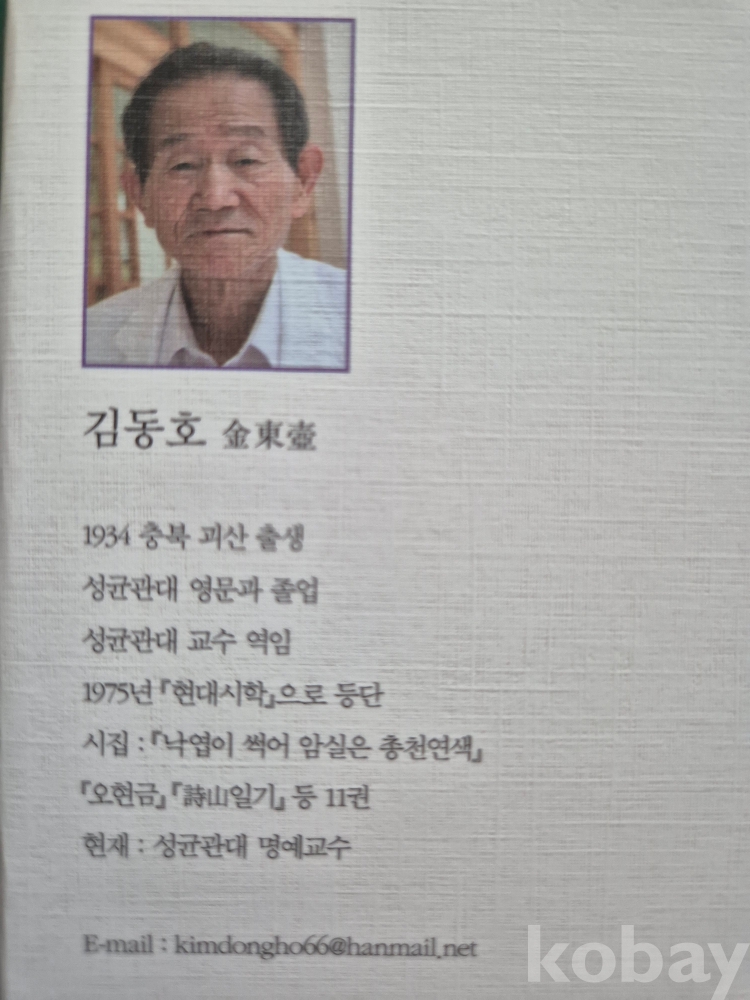 김동호 金東壺
1934 충북 괴산 출생
성균관대 영문과 졸업
성균관대 교수 역임
1975년 『현대시학』으로 등단
시집 : 『낙엽이 썩어 암실은 총천연색』
『오현금』 『詩山일기』 등 11권
현재 : 성균관대 명예교수
E-mail : kimdongho66@hanmail.net
kobay